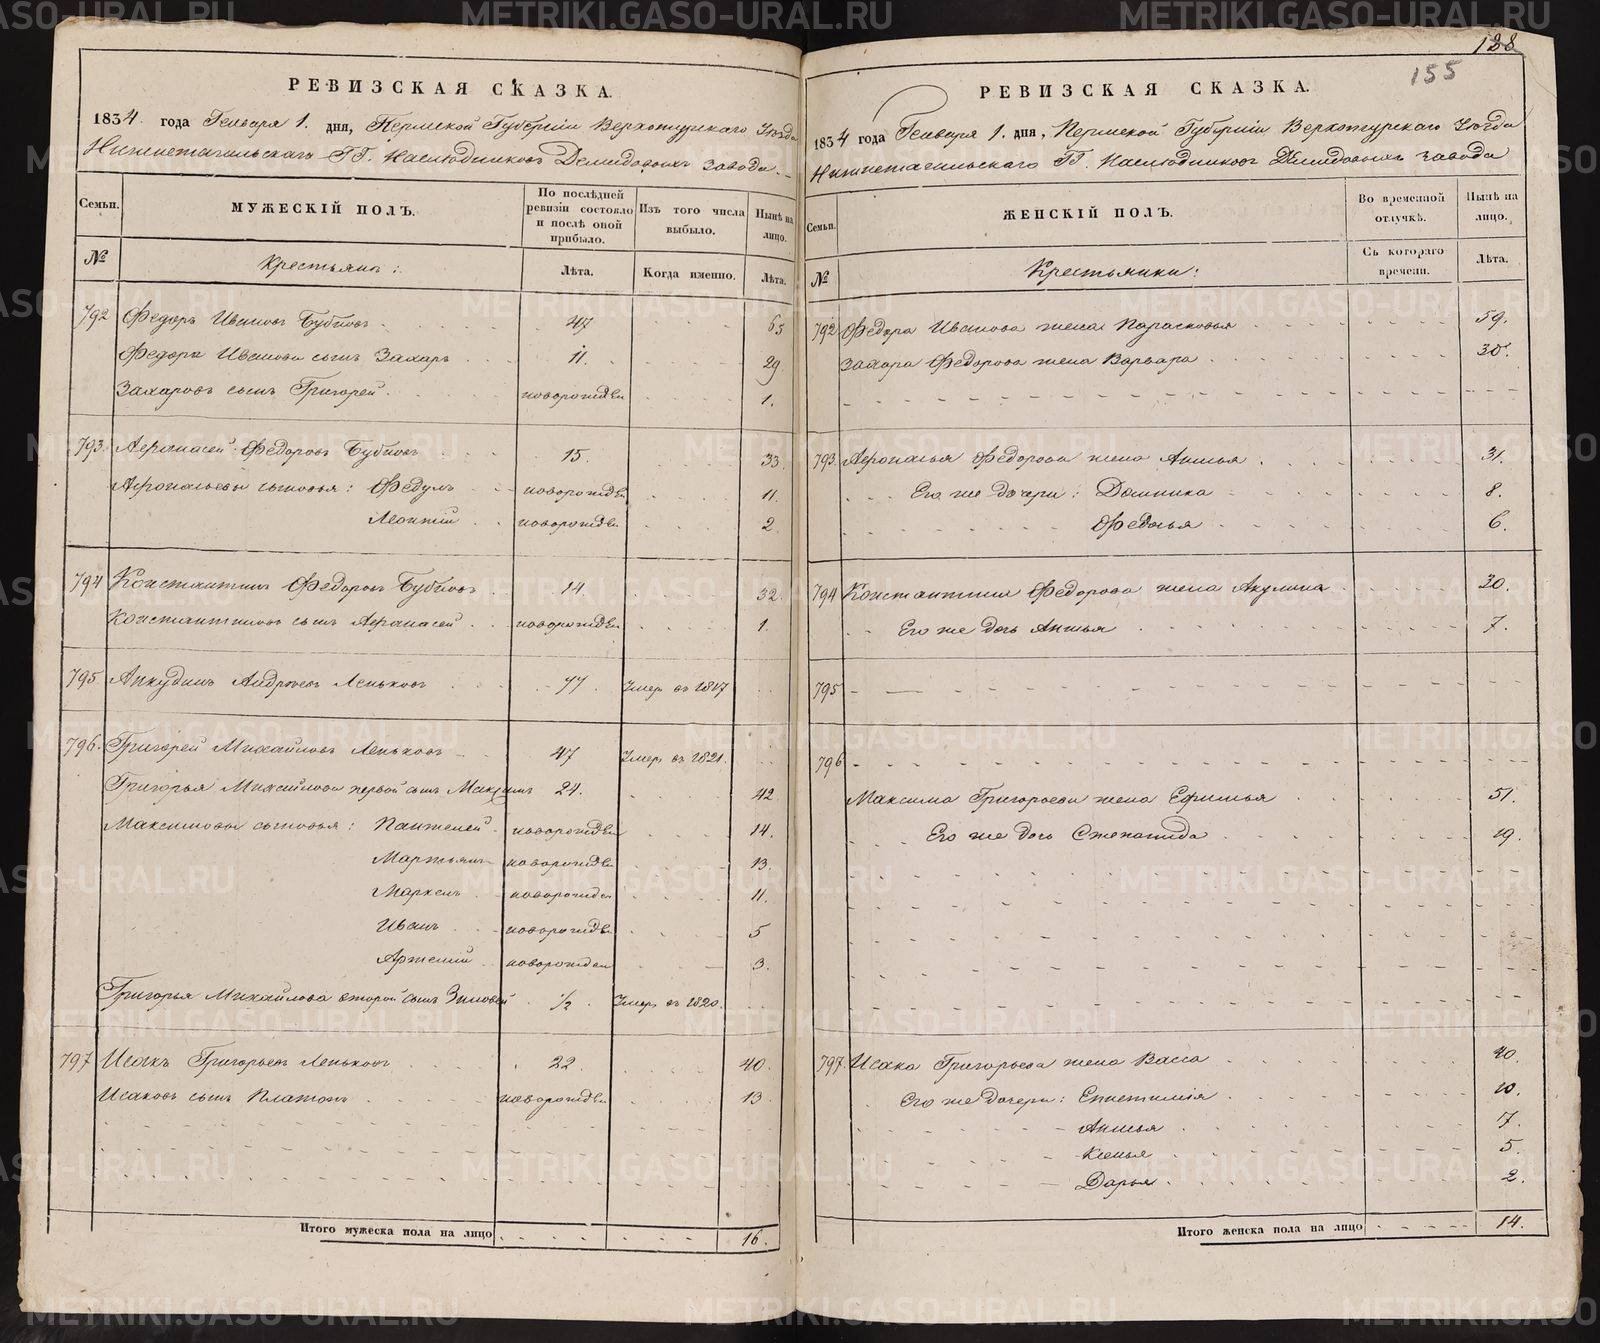 РЕВИЗСКАЯ СКАЗКА.
1834 года Генваря 1. дня, Пермской Губернии Верхотурского Уѣзда
Нижнетагильскаго ГГ. Наслѣдниковъ Демидовыхъ завода.
Семьи.
МУЖЕСКІЙ ПОЛЪ.
По послѣдней ревизіи состояло и послѣ оной прибыло.
Изъ того числа выбыло.
Нынѣ на лицо.
№
Крестьянъ:
Лѣта.
Когда именно.
Лѣта.
792 Федоръ Ивановъ Бубновъ 47 65
Федора Иванова сынъ Захаръ 11. 29
Захаровъ сынъ Григорей новорожден 1.
793. Афонасей Федоровъ Бубновъ 15. 33
Афонасьевы сыновья: Федулъ новорожден 11.
Леонтій новорожден 2
794 Константинъ Федоровъ Бубновъ 14. 32.
Константиновъ сынъ Афонасей новорожден 1.
795 Анкудинъ Андреевъ Леньковъ 77. Умеръ въ 1817
796. Григорей Михайловъ Леньковъ 47 Умеръ въ 1821.
Григорья Михайлова первой сынъ Максимъ 24. 42
Максимовы сыновья: Пантелей новорожден 14.
Мартьянъ новорожден 13.
Маркелъ новорожден 11.
Иванъ новорожден 5
Артемій новорожден 3.
Григорья Михайлова второй сынъ Зиновей 1/2. Умеръ въ 1820.
797 Исакъ Григорьевъ Леньковъ 22. 40.
Исаковъ сынъ Платонъ новорожден 13.
Итого мужеска пола на лицо 16.
128
155
РЕВИЗСКАЯ СКАЗКА.
1834 года Генваря 1. дня, Пермской Губерніи Верхотурскаго Уѣзда
Нижнетагильскаго ГГ. Наслѣдниковъ Демидовыхъ завода
Семьи.
ЖЕНСКІЙ ПОЛЪ.
Во временной отлучкѣ.
Нынѣ на лицо.
№
Крестьянки:
Съ котораго времени.
Лѣта.
792 Федора Иванова жена Парасковья 59.
Захара Федорова жена Варвара 30.
793. Афонасья Федорова жена Анисья 31.
Его же дочери: Домника 8.
Федосья 6.
794 Константина Федорова жена Акулина 30.
Его же дочь Анисья 7.
795
796
Максима Григорьева жена Ефимья 51.
Его же дочь Степанида 19.
797. Исака Григорьева жена Васса 40.
Его же дочери: Епистимія 10.
Анисья 7.
Ксенья 5.
Дарья 2.
Итого женска пола на лицо 14.
METRIKI.GASO-URAL.RU